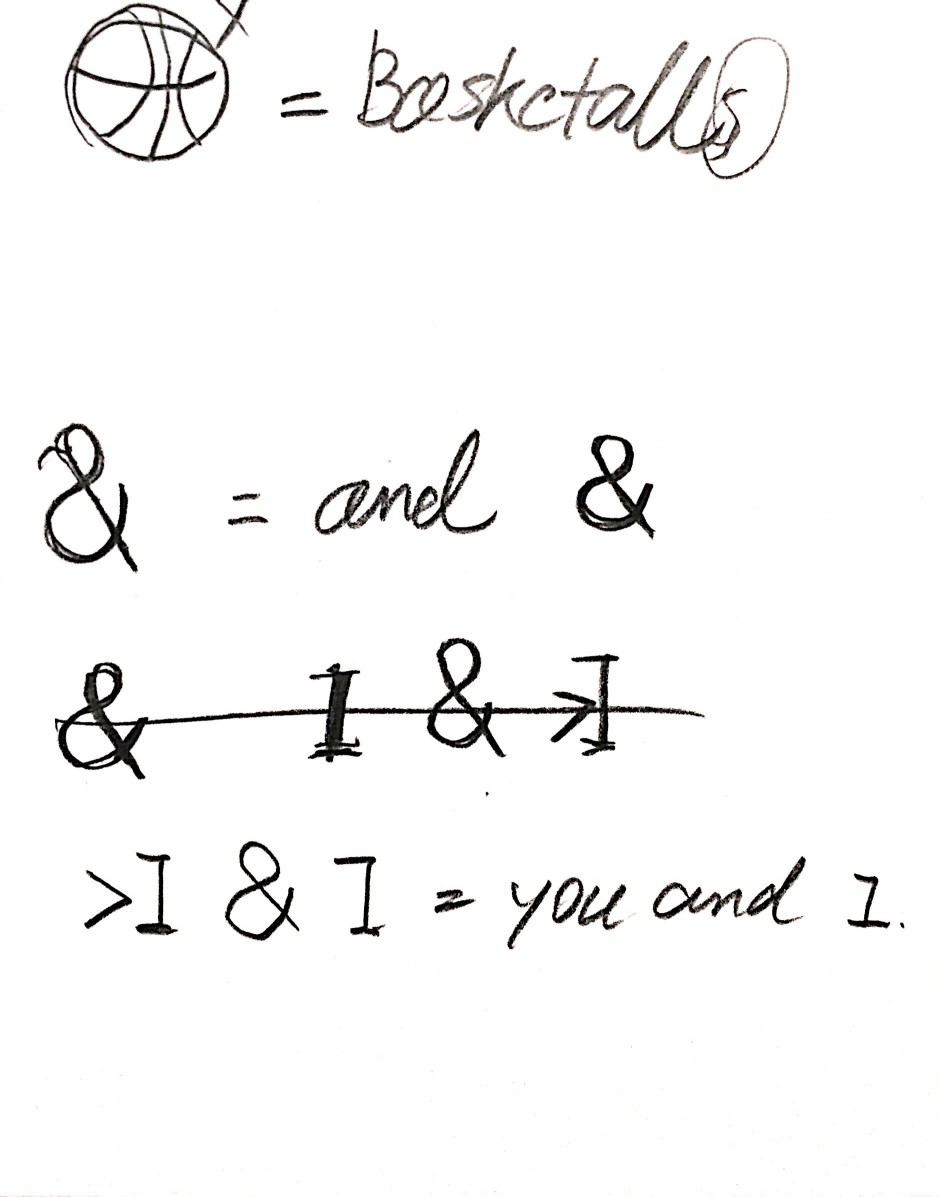 = Basketalls
& = and &
& I & >I
>I & I = you and I.